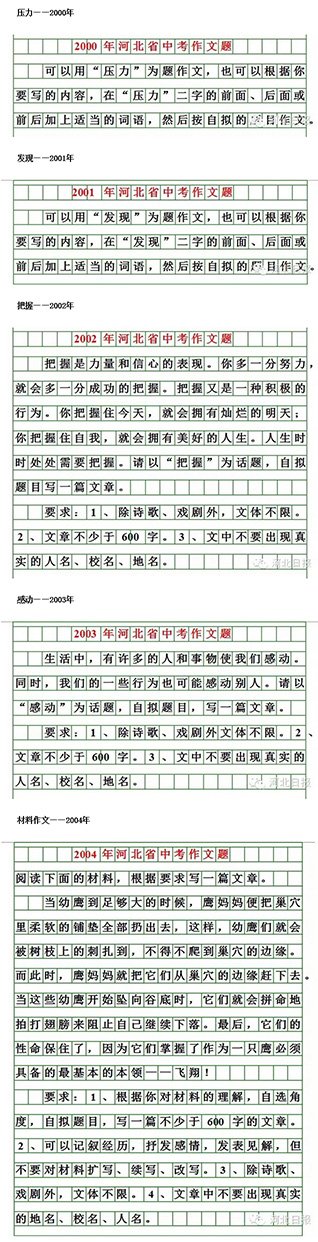 压力——2000年
2000 年河北省中考作文题
可以用“压力”为题作文，也可以根据你
要写的内容，在“压力”二字的前面、后面或
前后加上适当的词语，然后按自拟的题目作文。
发现——2001年
2001 年河北省中考作文题
可以用“发现”为题作文，也可以根据你
要写的内容，在“发现”二字的前面、后面或
前后加上适当的词语，然后按自拟的题目作文。
把握——2002年
2002 年河北省中考作文题
把握是力量和信心的表现。你多一分努力，
就会多一分成功的把握。把握又是一种积极的
行为。你把握住今天，就会拥有灿烂的明天；
你把握住自我，就会拥有美好的人生。人生时
时处处需要把握。请以“把握”为话题，自拟
题目写一篇文章。
要求：1、除诗歌、戏剧外，文体不限。
2、文章不少于 600 字。3、文中不要出现真
实的人名、校名、地名。
河北日报
感动——2003年
2003 年河北省中考作文题
生活中，有许多的人和事物使我们感动。
同时，我们的一些行为也可能感动别人。请以
“感动”为话题，自拟题目，写一篇文章。
要求：1、除诗歌、戏剧外文体不限。2、
文章不少于 600 字。3、文中不要出现真实的
人名、校名、地名。
河北日报
材料作文——2004年
2004 年河北省中考作文题
阅读下面的材料，根据要求写一篇文章。
当幼鹰到足够大的时候，鹰妈妈便把巢穴
里柔软的铺垫全部扔出去，这样，幼鹰们就会
被树枝上的刺扎到，不得不爬到巢穴的边缘。
而此时，鹰妈妈就把它们从巢穴的边缘赶下去。
当这些幼鹰开始坠向谷底时，它们就会拼命地
拍打翅膀来阻止自己继续下落。最后，它们的
性命保住了，因为它们掌握了作为一只鹰必须
具备的最基本的本领——飞翔！
要求：1、根据你对材料的理解，自选角
度，自拟题目，写一篇不少于 600 字的文章。
2、可以记叙经历，抒发感情，发表见解，但
不要对材料扩写、续写、改写。3、除诗歌、
戏剧外，文体不限。4、文章中不要出现真实
的地名、校名、人名。
河北日报